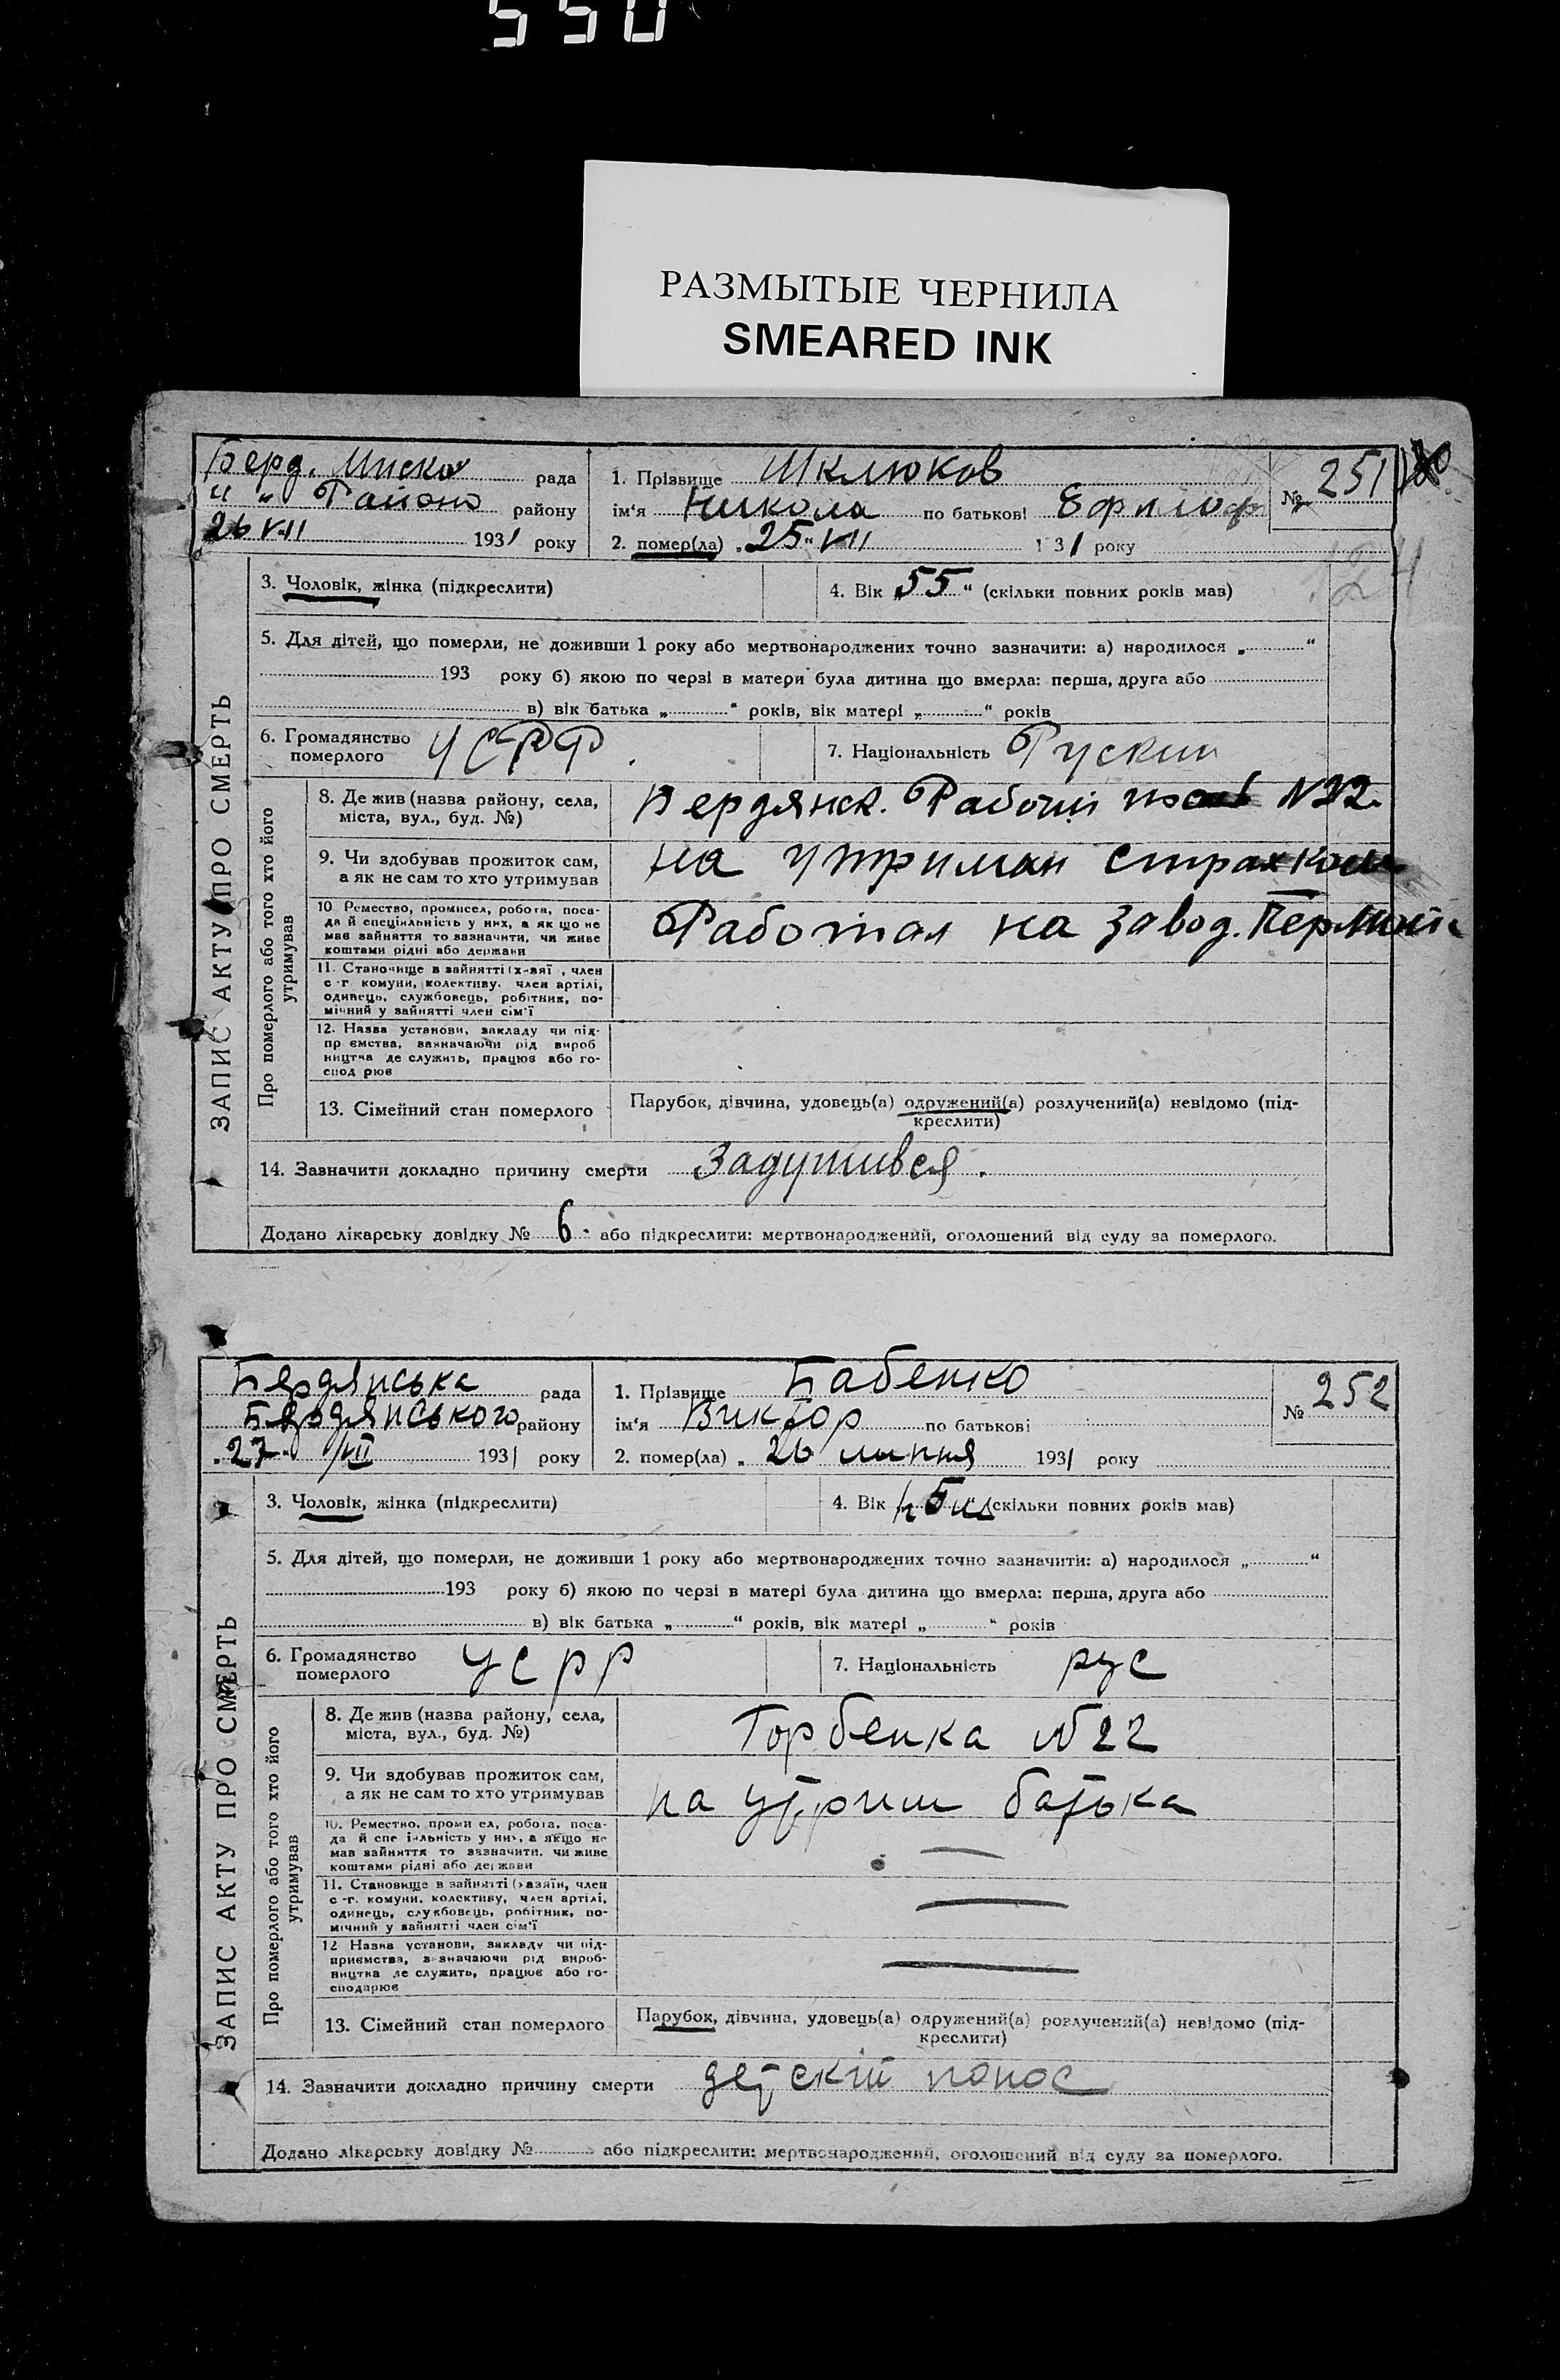 550
РАЗМЫТЫЕ ЧЕРНИЛА
SMEARED INK
Берд. Миско рада
" " Района району
26 VII 1931 року
1. Прізвище Шклюков
ім'я Никола по батькові
2. помер(ла) „25“ VII 1 31 року
№ 251
124
ЗАПИС АКТУ ПРО СМЕРТЬ
3. Чоловік, жінка (підкреслити)
4. Вік „55“ (скільки повних років мав)
5. Для дітей, що померли, не доживши 1 року або мертвонароджених точно зазначити: а) народилося „ “
193 року б) якою по черзі в матери була дитина що вмерла: перша, друга або
в) вік батька „ “ років, вік матері „ “ років
6. Громадянство
померлого УСРР.
7. Національність Руский
Про померлого або того хто його
утримував
8. Де жив (назва району, села,
міста, вул., буд. №)
Бердянск. Рабочий №22.
9. Чи здобував прожиток сам,
а як не сам то хто утримував
на утриман страхкаси
10 Ремество, промисел, робота, поса-
да й спеціяльність у них, а як що не
має зайняття то зазначити, чи живе
коштами рідні або держави
Работал на завод.
11. Становище в зайнятті (х-зяї , член
с-г комуни, колективу, член артілі,
одинець, службовець, робітник, по-
мічний у зайнятті член сім'ї
12. Назва установи, закладу чи під-
пр ємства, зазначаючи рід вироб
ництва де служить, працює або го-
спод рює
13. Сімейний стан померлого
Парубок, дівчина, удовець(а) одружений(а) розлучений(а) невідомо (під-
креслити)
14. Зазначити докладно причину смерти Задушився.
Додано лікарську довідку № 6. або підкреслити: мертвонароджений, оголошений від суду за померлого.
Бердянська рада
Бердянського району
„27“ VII 1931 року
1. Прізвище Бабенко
ім'я Виктор по батькові
2. помер(ла) „ 26 липня 1931 року
№ 252
ЗАПИС АКТУ ПРО СМЕРТЬ
3. Чоловік, жінка (підкреслити)
4. Вік (скільки повних років мав)
5. Для дітей, що померли, не доживши 1 року або мертвонароджених точно зазначити: а) народилося „ “
193 року б) якою по черзі в матері була дитина що вмерла: перша, друга або
в) вік батька „ “ років, вік матері „ “ років
6. Громадянство
померлого УСРР
7. Національність рус
Про померлого або того хто його
утримував
8. Де жив (назва району, села,
міста, вул., буд. №)
Горбенка №22
9. Чи здобував прожиток сам,
а як не сам то хто утримував
на утрим батька
10. Ремество, проми ел, робота, поса-
да й спе іяльність у них, а якщо не
мав зайняття то зазначити, чи живе
коштами рідні або держави
11. Становище в зайнятті (хазяїн, член
с-г. комуни, колективу, член артілі,
одинець, службовець, робітник, по-
мічний у зайнятті член сім'ї
12 Назва установи, закладу чи під-
приємства, зазначаючи рід вироб-
ництва де служить, працює або го-
сподарює
13. Сімейний стан померлого
Парубок, дівчина, удовець(а) одружений(а) розлучений(а) невідомо (під-
креслити)
14. Зазначити докладно причину смерти детскій понос
Додано лікарську довідку № або підкреслити: мертвонароджений, оголошений від суду за померлого.